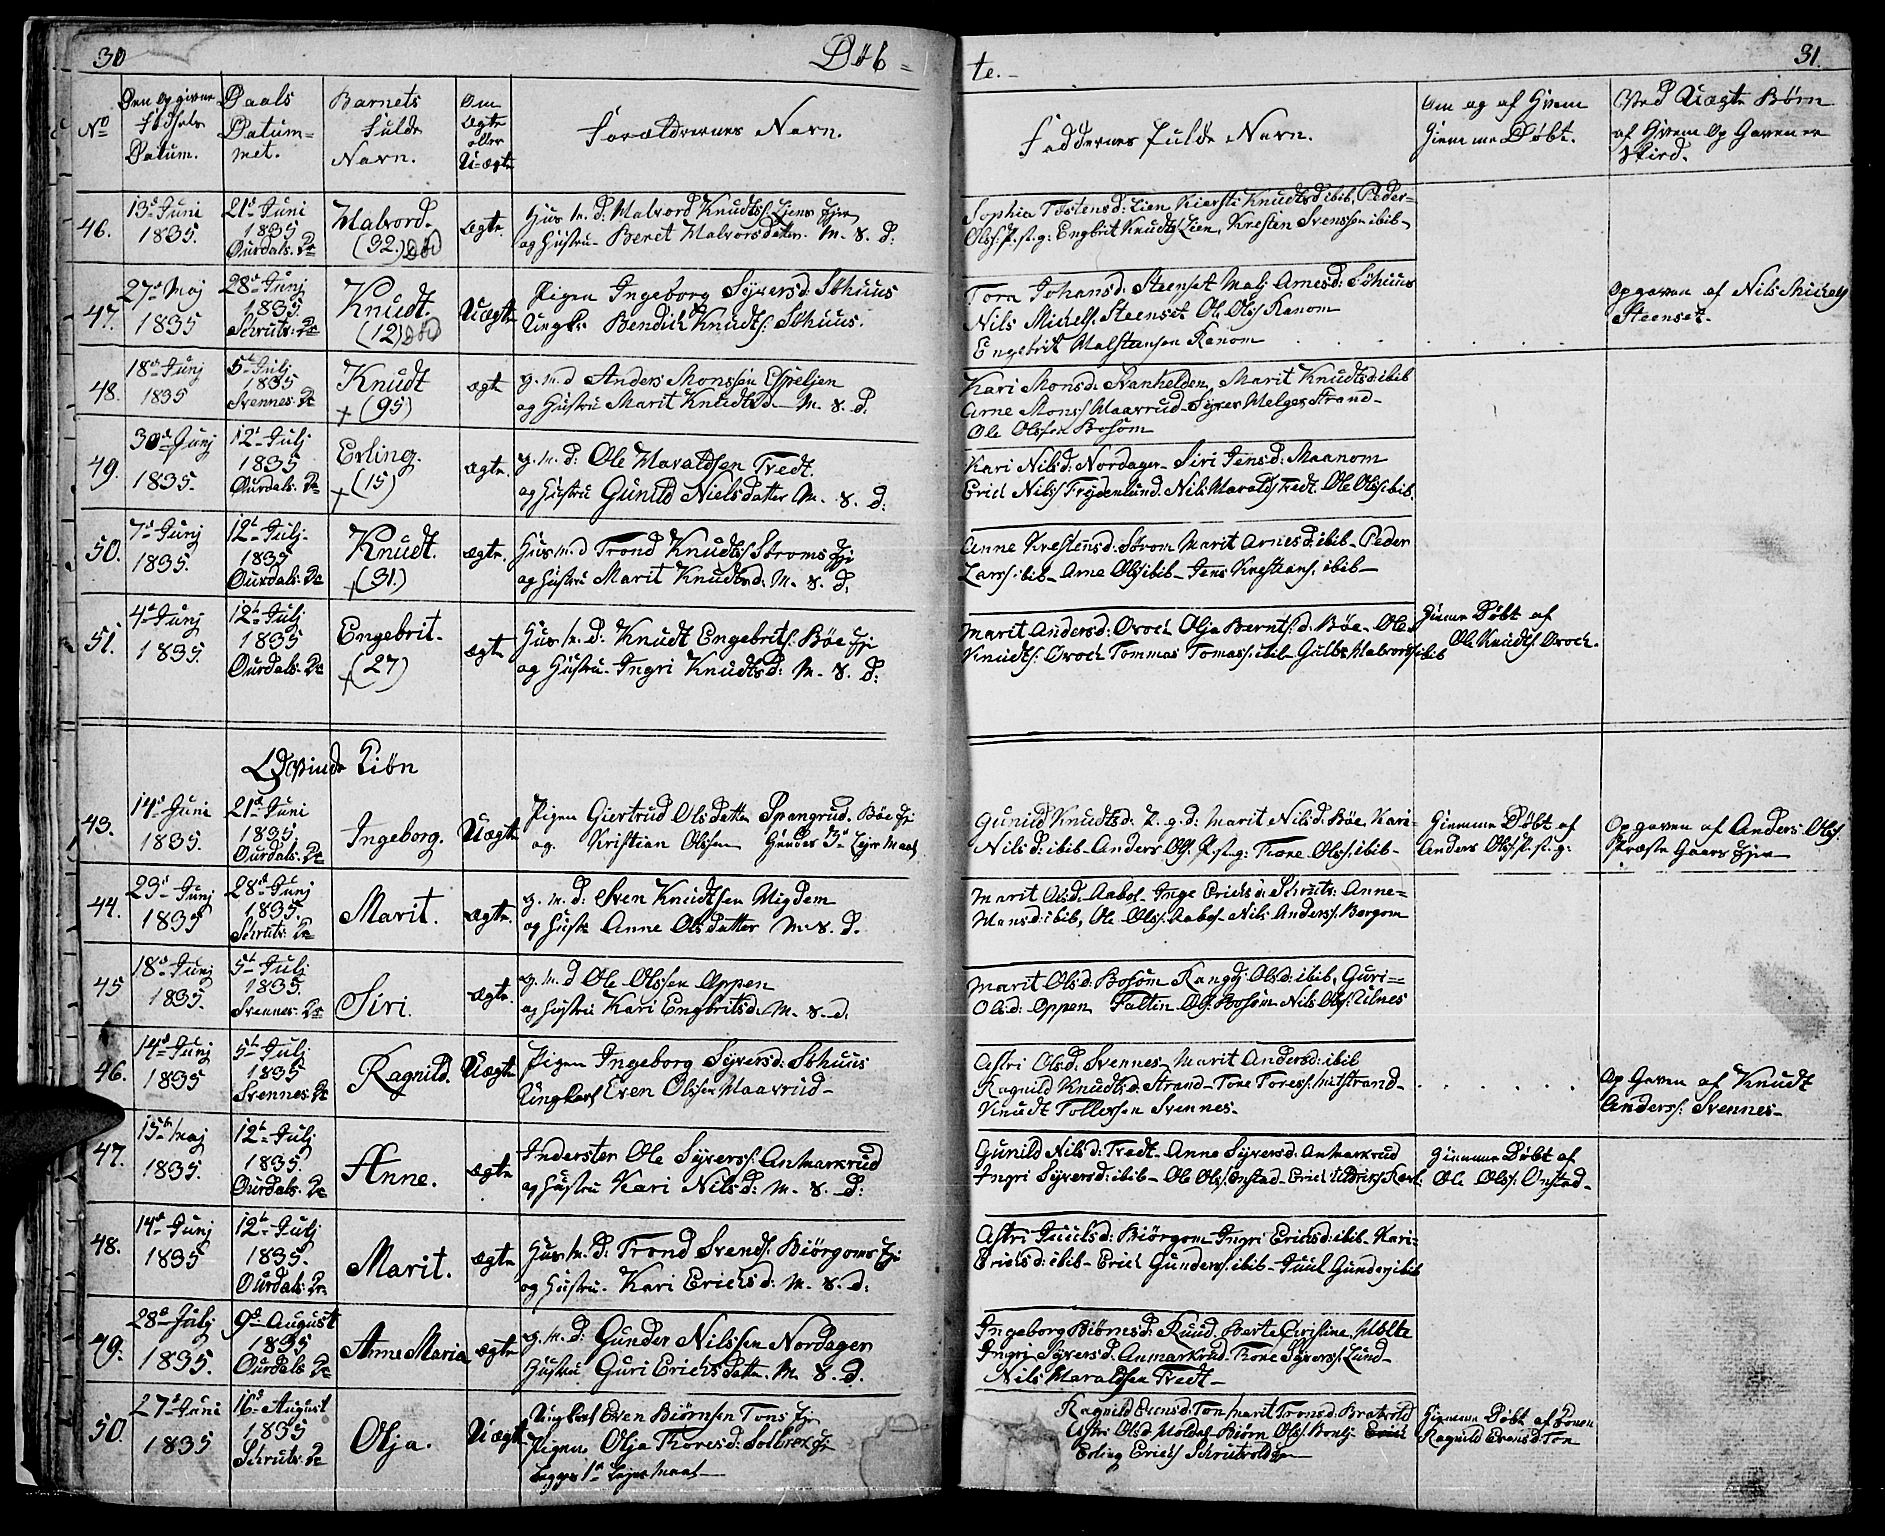 30
Døb =
te. -
31.
No
Den Opgivne Fødsels Datum.
Daabs Datum= met.
Barnets fulde Navn.
Om Ægte eller U=ægte
Forældrenes Navn.
Faddernes fulde Navn.
Om og af Hvem Hiemme Døbt.
Ved Uægte Børn af Hvem Opgaven er skeed.
46.
13d Juni 1835.
21d Juni 1835 Ourdals. K
Halvord. (32)
ægte.
Huus m. d: Halvord Knudts: Liens Eje
og Hustru- Beret Halvorsdatter. M. & D:
Sophia Tostensd: Lien Kiersti Knudtsd ibib, Peder-
Olss: P. st. g: Engbrit Knudts: Lien, Kresten Svenssen ibib-
47.
27d Maj 1835
28d Junj 1835. Schruts: K
Knudt. (12)
Uægte
Pigen Ingeborg Syversd: Søhuus
Ungk. Bendich Knudts: Søhuus.
Tora Johansd: Steenset Mali Arnesd: Søhuus
Nils Michels. Steenset Ole Olss Ranom
Engebrit Halstensen Ranom
Opgaven af Nils Michels
Steenset.
48.
18d Junj 1835
5t Julj 1835 Svennes. K
Knudt + (95)
ægte
g. m. d Anders Monssen Espelien
og Hustru Marit Knudtsd- M. & D.
Kari Monsd: Svanhelden, Marit Knudtsd: ibib
Arne Monss Haavrud Syver Helges Strand-
Ole Olssen Bosom
49.
30d Junj 1835-
12t Julj 1835 Ourdals. K
Erling. +(15)
ægte.
g. m. d: Ole Haraldsen Tredt.
og Hustru Gunild Nielsdatter M. & D:
Kari Nilsd: Nordager- Siri Jensd: Maanom
Erich Nilss Frydenlund. Nils Haralds Tredt. Ole Olss: ibib.
50.
7d Junj 1835.
12t Julj- 1835 Ourdals: K
Knudt. +(31.)
ægte.
Huus m. d Trond Knudts: Strøms Eje
og Hustru Marit Knudtsd: M. & D.
Anne Krestensd: Sørom Marit Arnesd: ibib- Peder
Larss: ibib- Arne Olss ibib- Jens Krestians. ibib-
51.
4d Junj 1835.
12t Julj 1835 Ourdals. K
Engebrit- + (27)
ægte
Huus m. D: Knudt Engebrits: Bøe Eje
og Hustru- Ingri Knudtsd: M. & D:
Marit Andersd: Oroch Olja Berntsd: Bøe- Ole
Knudts: Oroch Tommas Tomass: ibib- Gulbr Halvors ibib
Hiemme Døbt af
Ole Knudts. Oroch.
Qvinde Kiøn
43.
14d Juni 1835.
21d Juni 1835. Ourdals: K
Ingeborg.
Uægte
Pigen Giertrud Olsdatter Spangrud. Bøe Eje
og Kristian Olssen Hendes 3d Leier Maal
Gunild Knudtsd. P. g. d: Marit Nilsd. Bøe, Kari-
Nilsd: ibib- Anders Olss. P. st. g: Tore Olss: ibib-
Hiemme Døbt af
Anders Olss: P. st. g:
Opgaven af Anders Olss.
Præste Gaars Eje-
44.
23d Junj 1835
28d Junj 1835. Schruts: K
Marit.
ægte.
g. m. d: Sven Knudtsen Migdem
og Hustr Anne Olsdatter M. & D.
Marit Olsd. Aabol- Inge Erichsd: Schruts: Anne=
Hansd: ibib, Ole Olss: Aabol- Nils Anderss: Borgom
45
18d Junj 1835.
5t Julj 1835. Svennes: K
Siri.
ægte.
g. m. d Ole Olssen Oppen
og Hustru Kari Engbritsd. M. & D.
Marit Olsd: Bosom Rangdj Olsd: ibib, Guri=
Olsd: Oppen Falten Ols. Bosom Nils Olss: Ulnes
46.
14d Junj 1835
5t Julj 1835 Svennes. K
Ragnild.
Uægte
Pigen Ingeborg Syversd: Søhuus
Ungkarl Even Olssen Haavrud-
Astri Olsd. Svennes- Marit Andersd: ibib
Ragnild Knudtsd: Strand- Tore Toress: Midstrand-
Knudt Tollefsen Svennes-
Opgaven af Knudt
Anderss: Svennes-
47.
15de Maj 1835.
12t Julj 1835. Ourdals K
Anne.
ægte
Indersten Ole Syverss: Anmarkrud
og Hustru Kari Nilsd: M. & D:
Gunild Nilsd: Tredt- Anne Syversd: Anmarkrud
Ingri Syversd: ibib- Ole Olss: Onstad- Erich Uldrichs:
Hiemme Døbt af
Ole Olss: Onstad-
48.
14d Junj 1835
12t Julj 1835. Ourdals. K
Marit.
ægte
Huus m. D: Trond Svends. Biørgoms Eje
og Hustru. Kari Erichsd: M. & D:
Astri Juulsd: Biørgom- Ingri Erichsd: ibib. Kari=
Erichsd: ibib- Erich Gunderss: ibib- Juul Gunders ibib
49.
28d Julj 1835.
9d August 1835 Ourdals. K
Anne Maria
ægte
g. m. d: Gunder Nilssen Nordager
Hustru Guri Erichsdatter. M. & D.
Ingeborg Biørnsd: Ruud. Berte Christine Holte
Ingri Syversd. Anmarkrud- Tore Syverss: Lund-
Nils Haraldsen Tredt-
50.
27d Juni 1835
16d August 1835 Schruts: K
Olja.
Uægte
Ungkarl Even Biørnsen Tons Eje
Pigen Olja Thoresd: Solbrek Eje
Begges 1d Leiermaal-
Ragnild Evensd: Ton Marit Tronsd: Bratvold
Astri Olsd Moldes Biørn Olss:
Erling Erichs Schrutvolds Eje-
Hiemme Døbt af Konen
Ragnild Evensd: Ton